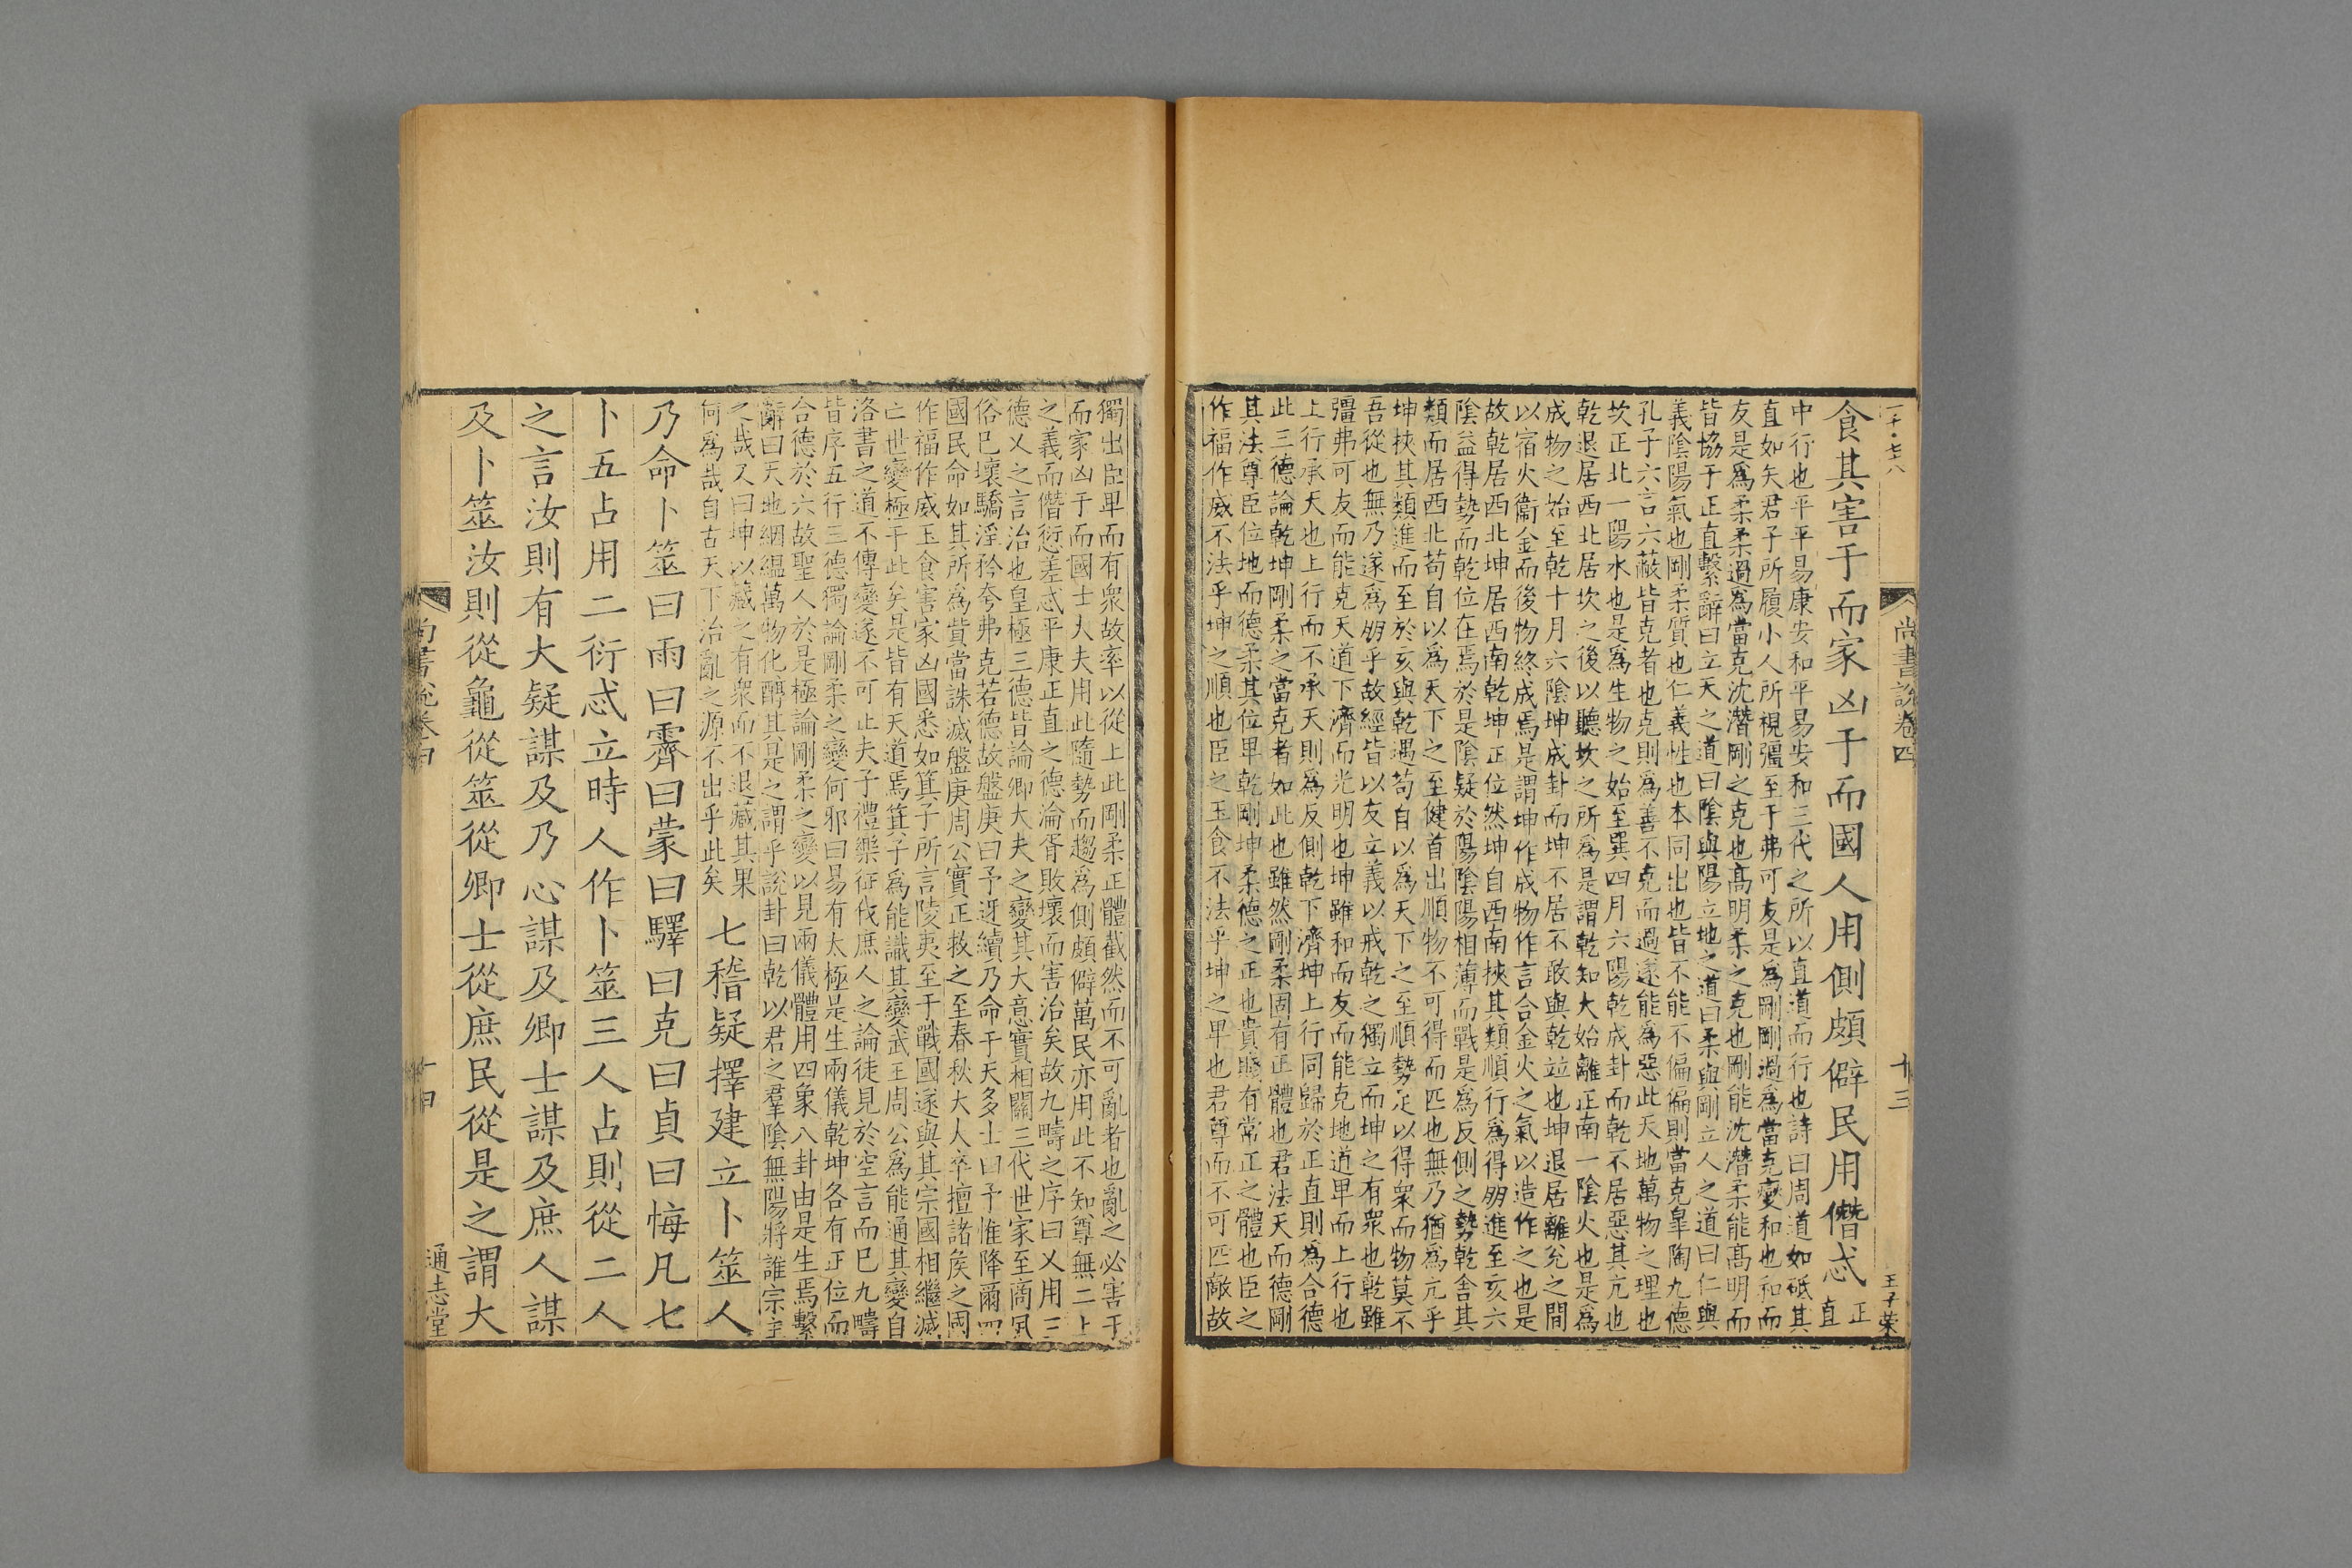 尚書說卷四
十三
王子榮
食其害于而家凶于而國人用側頗僻民用僭忒正直
中行也平平易康安和平易安和三代之所以直道而行也詩曰周道如砥其
直如矢君子所履小人所視彊至于弗可友是為剛剛過為當克變和也和而
友是為柔柔過為當克沈潛剛之克也高明柔之克也剛能沈潛柔能高明而
皆協于正直繫辭曰立天之道曰陰與陽立地之道曰柔與剛立人之道曰仁與
義陰陽氣也剛柔質也仁義性也本同出也皆不能不偏偏則當克皐陶九德
孔子六言六蔽皆克者也克則為善不克而過遂能為惡此天地萬物之理也
坎正北一陽水也是為生物之始至巽四月六陽乾成卦而乾不居惡其亢也
乾退居西北居坎之後以聽坎之所為是謂乾知大始離正南一陰火也是為
成物之始至乾十月六陰坤成卦而坤不居不敢與乾竝也坤退居離兊之間
以宿火衞金而後物終成焉是謂坤作成物作言合金火之氣以造作之也是
故乾居西北坤居西南乾坤正位然坤自西南挾其類順行為得朋進至亥六
陰益得勢而乾位在焉於是陰疑於陽陰陽相薄而戰是為反側之勢乾舍其
類而居西北苟自以為天下之至健首出順物不可得而匹也無乃猶為亢乎
坤挾其類進而至於亥與乾遇苟自以為天下之至順勢足以得衆而物莫不
吾從也無乃遂為朋乎故經皆以友立義以戒乾之獨立而坤之有衆也乾雖
彊弗可友而能克天道下濟而光明也坤雖和而友而能克地道卑而上行也
上行承天也上行而不承天則為反側乾下濟坤上行同歸於正直則為合德
此三德論乾坤剛柔之當克者如此也雖然剛柔固有正體也君法天而德剛
其法尊臣位地而德柔其位卑乾剛坤柔德之正也貴賤有常正之體也臣之
作福作威不法乎坤之順也臣之玉食不法乎坤之卑也君尊而不可匹敵故
獨出臣卑而有衆故率以從上此剛柔正體截然而不可亂者也亂之必害于
而家凶于而國士大夫用此隨勢而趨為側頗僻萬民亦用此不知尊無二上
之義而僭愆差忒平康正直之德淪胥敗壞而害治矣故九疇之序曰乂用三
德乂之言治也皇極三德皆論卿大夫之變其大意實相關三代世家至商風
俗已壞驕淫矜夸弗克若德故盤庚曰予迓續乃命于天多士曰予惟降爾四
國民命如其所為貲當誅滅盤庚周公實正救之至春秋大人卒擅諸矦之國
作福作威玉食害家凶國悉如箕子所言陵夷至于戰國遂與其宗國相繼滅
亡世變極乎此矣是皆有天道焉箕子為能識其變武王周公為能通其變自
洛書之道不傳變遂不可止夫子禮樂征伐庶人之論徒見於空言而已九疇
皆序五行三德獨論剛柔之變何邪曰易有太極是生兩儀乾坤各有正位而
合德於六故聖人於是極論剛柔之變以見兩儀體用四象八卦由是生焉繫
辭曰天地絪縕萬物化醇其是之謂乎說卦曰乾以君之羣陰無陽將誰宗主
之哉又曰坤以藏之有衆而不退藏其果
何為哉自古天下治亂之源不出乎此矣
七稽疑擇建立卜筮人
乃命卜筮曰雨曰霽曰蒙曰驛曰克曰貞曰悔凡七
卜五占用二衍忒立時人作卜筮三人占則從二人
之言汝則有大疑謀及乃心謀及卿士謀及庶人謀
及卜筮汝則從龜從筮從卿士從庶民從是之謂大
尚書說卷四
十四
通志堂